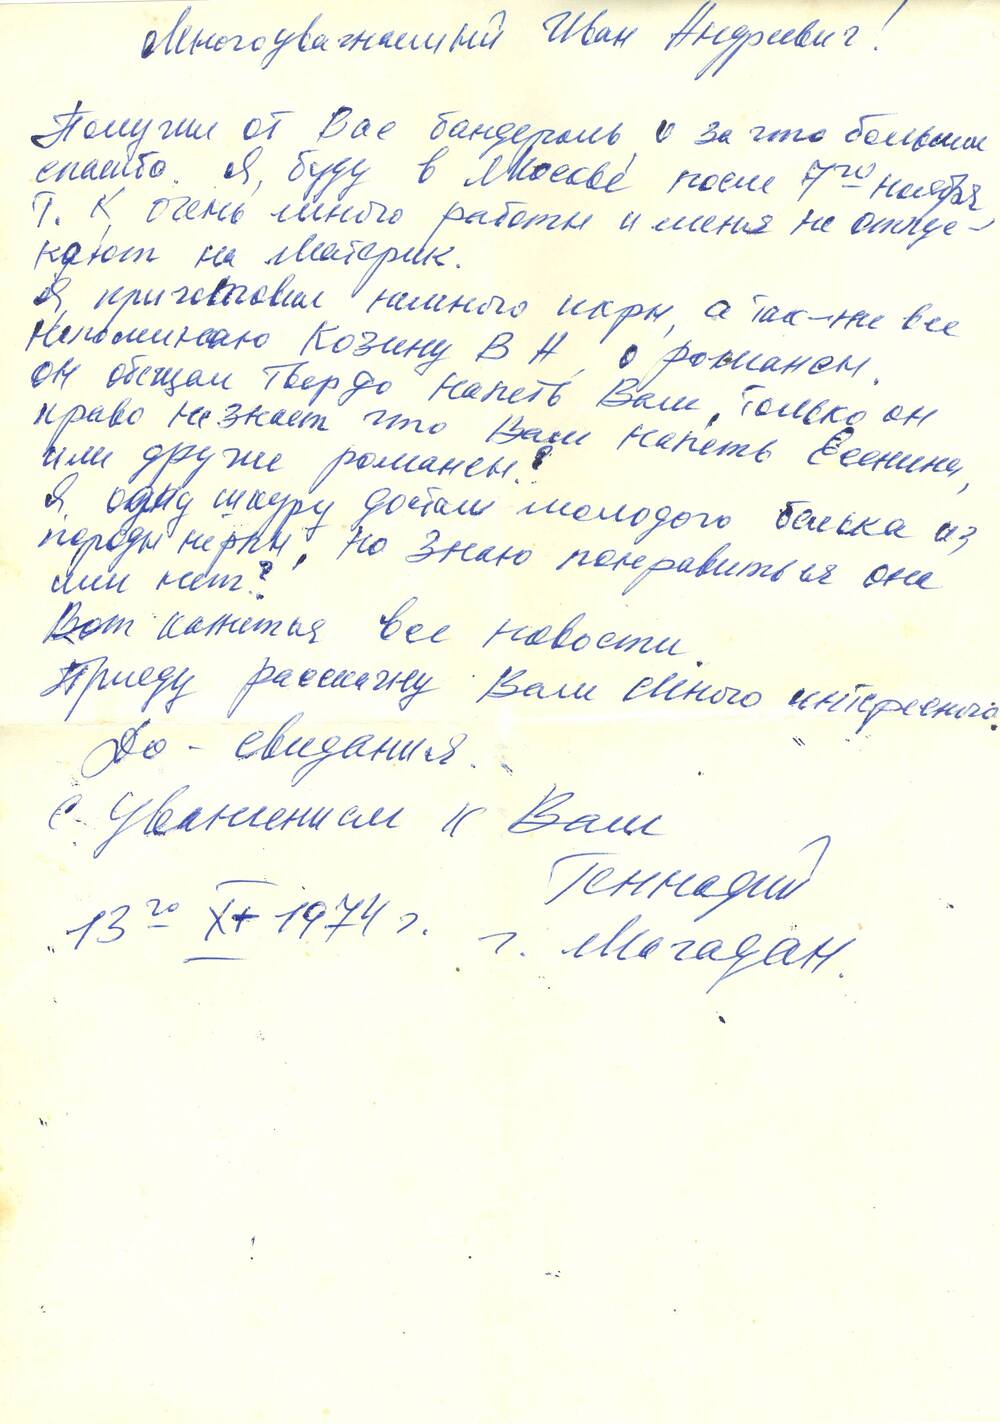 Многоуважаемый Иван Андреевич!
Получил от Вас бандероль, и за что большое
спасибо. Я, буду в Москве после 7го ноября
Т. К. очень много работы и меня не отпус-
кают на Материк.
Я, приготовил немного икры, а так-же все
напоминаю Козину В А о романсы.
он обещал твердо напеть Вам, только он
право не знает что Вам напеть Есенина,
или другие романсы?
Я, одну шкуру достал молодого белька из
породы нерпы, но знаю понравиться она
или нет?
Вот кажется все новости.
Приеду расскажу Вам много интересного.
До - свидания.
с уважением к Вам
Геннадий
13го XI 1974 г. г. Магадан.